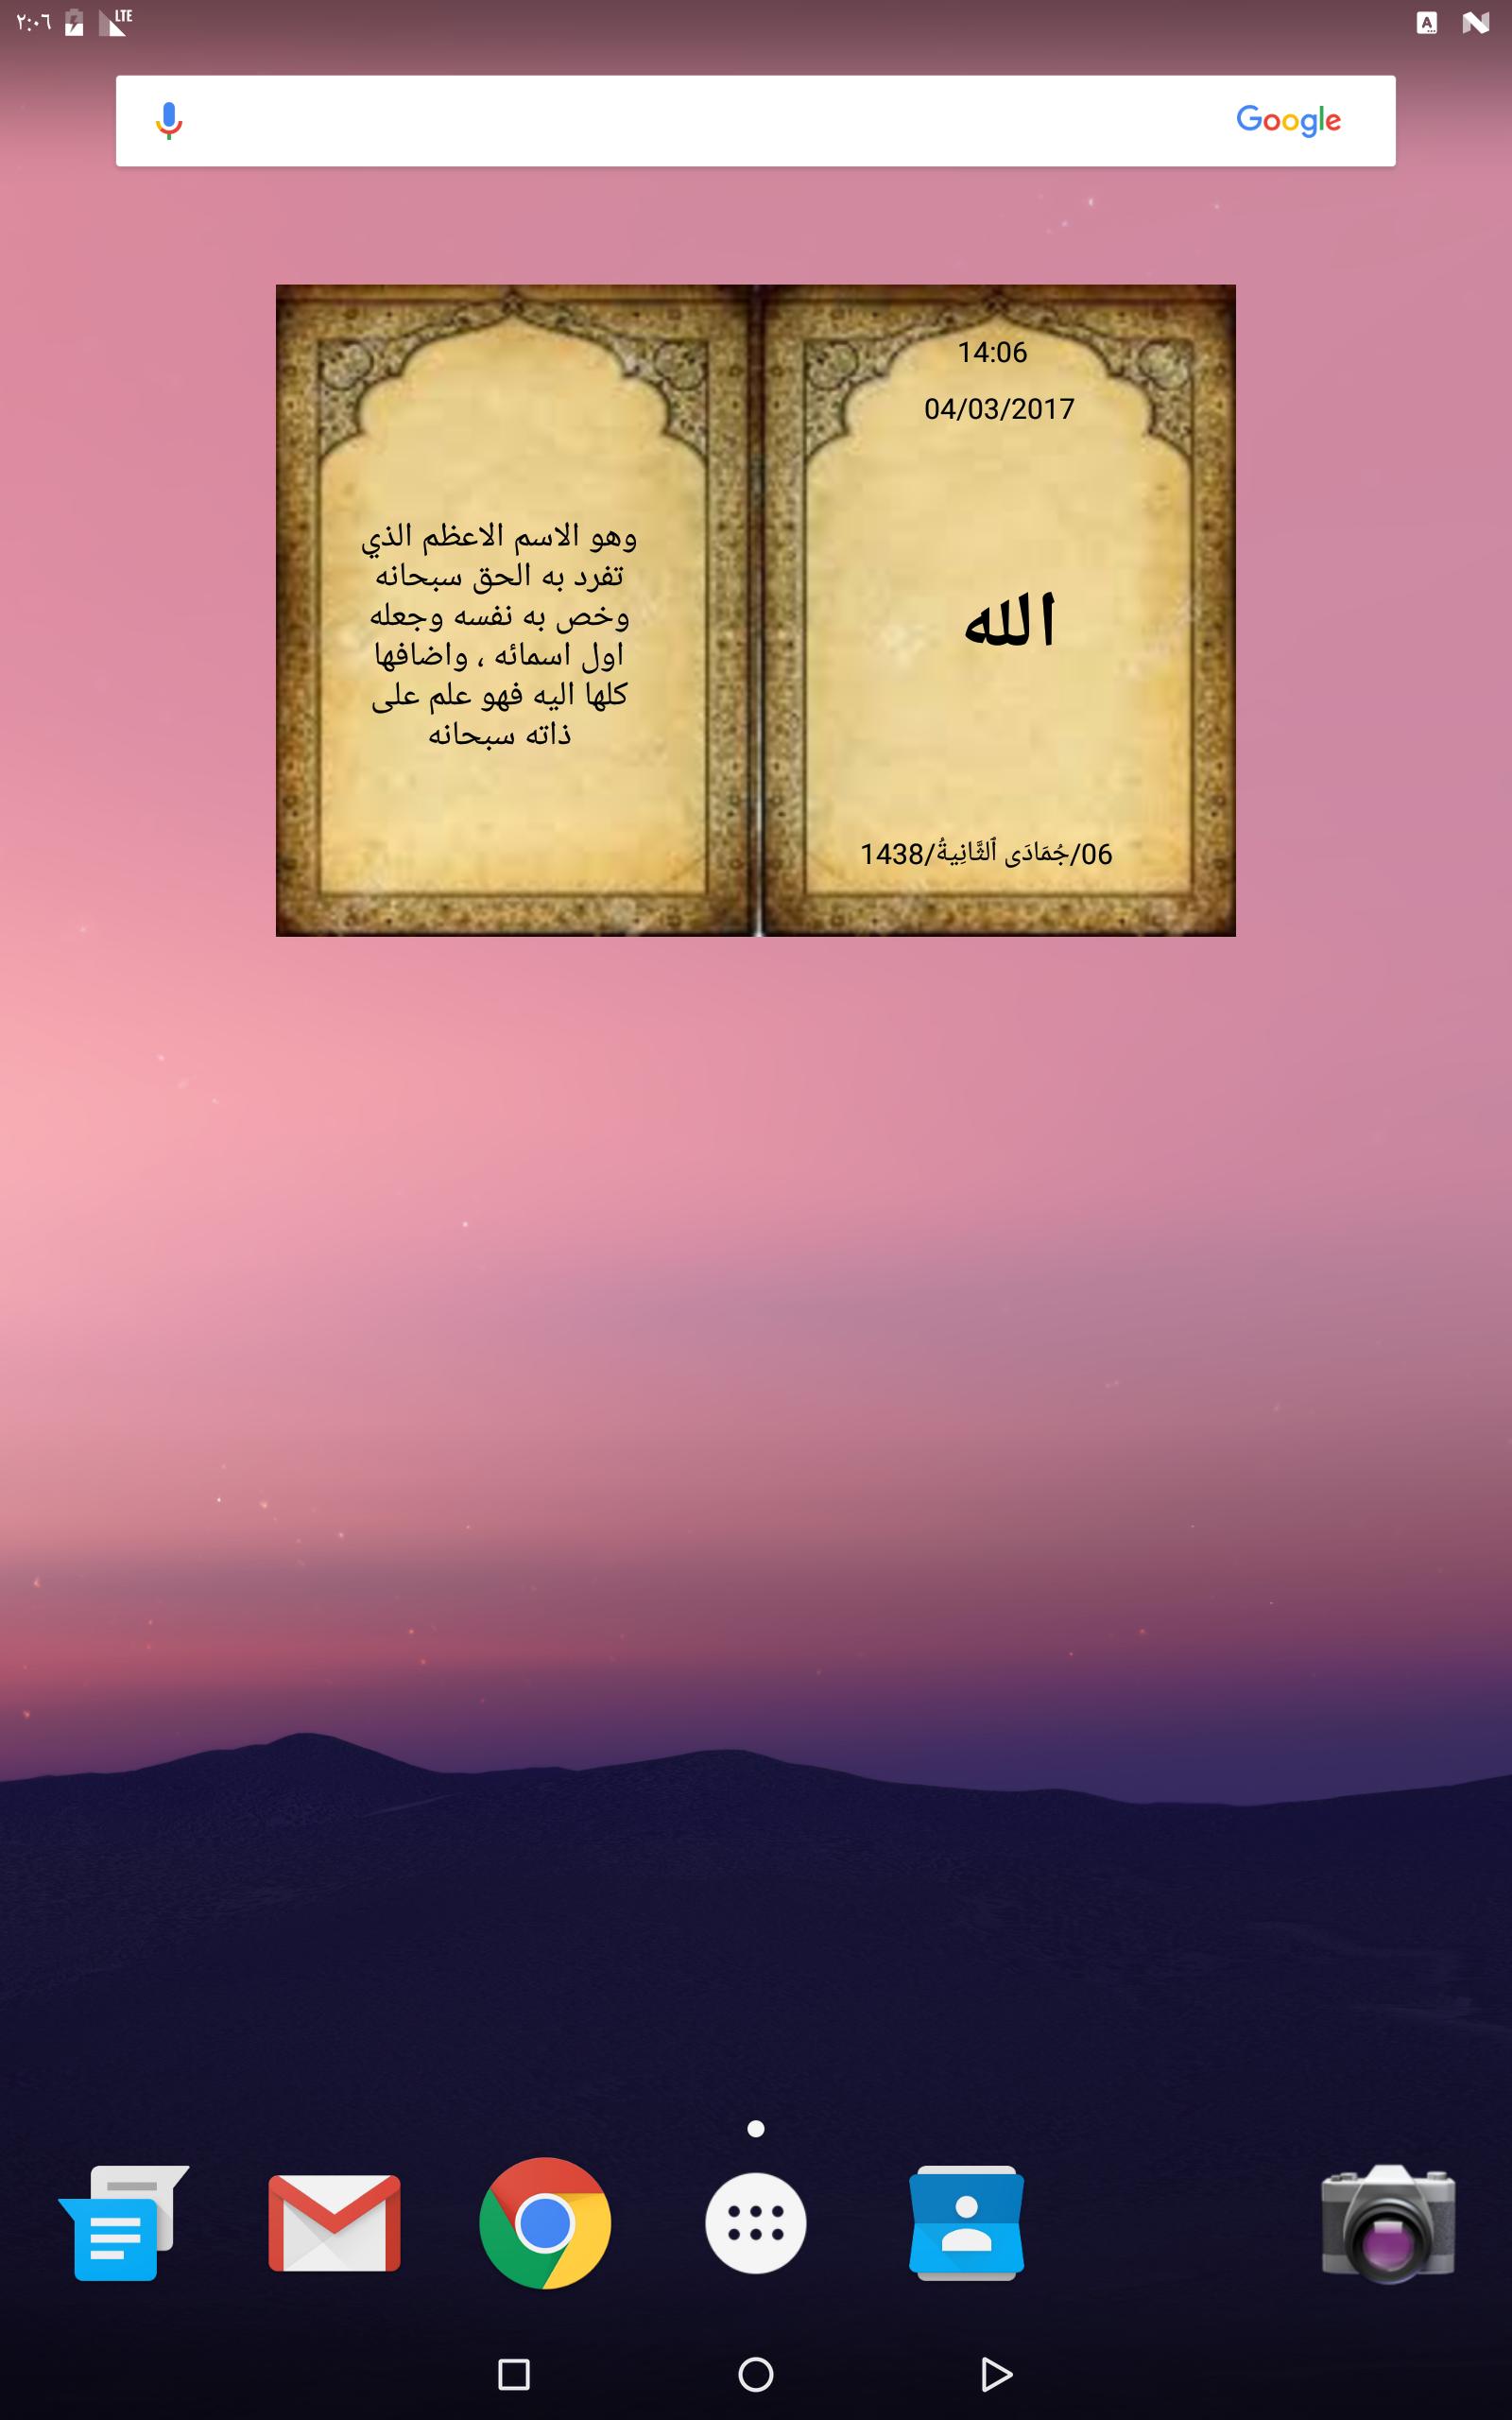 ٢:٠٦
LTE
A
Google
14:06
04/03/2017
الله
06/جُمَادَى ٱلثَّانِيةُ/1438
وهو الاسم الاعظم الذي
تفرد به الحق سبحانه
وخص به نفسه وجعله
اول اسمائه ، واضافها
كلها اليه فهو علم على
ذاته سبحانه